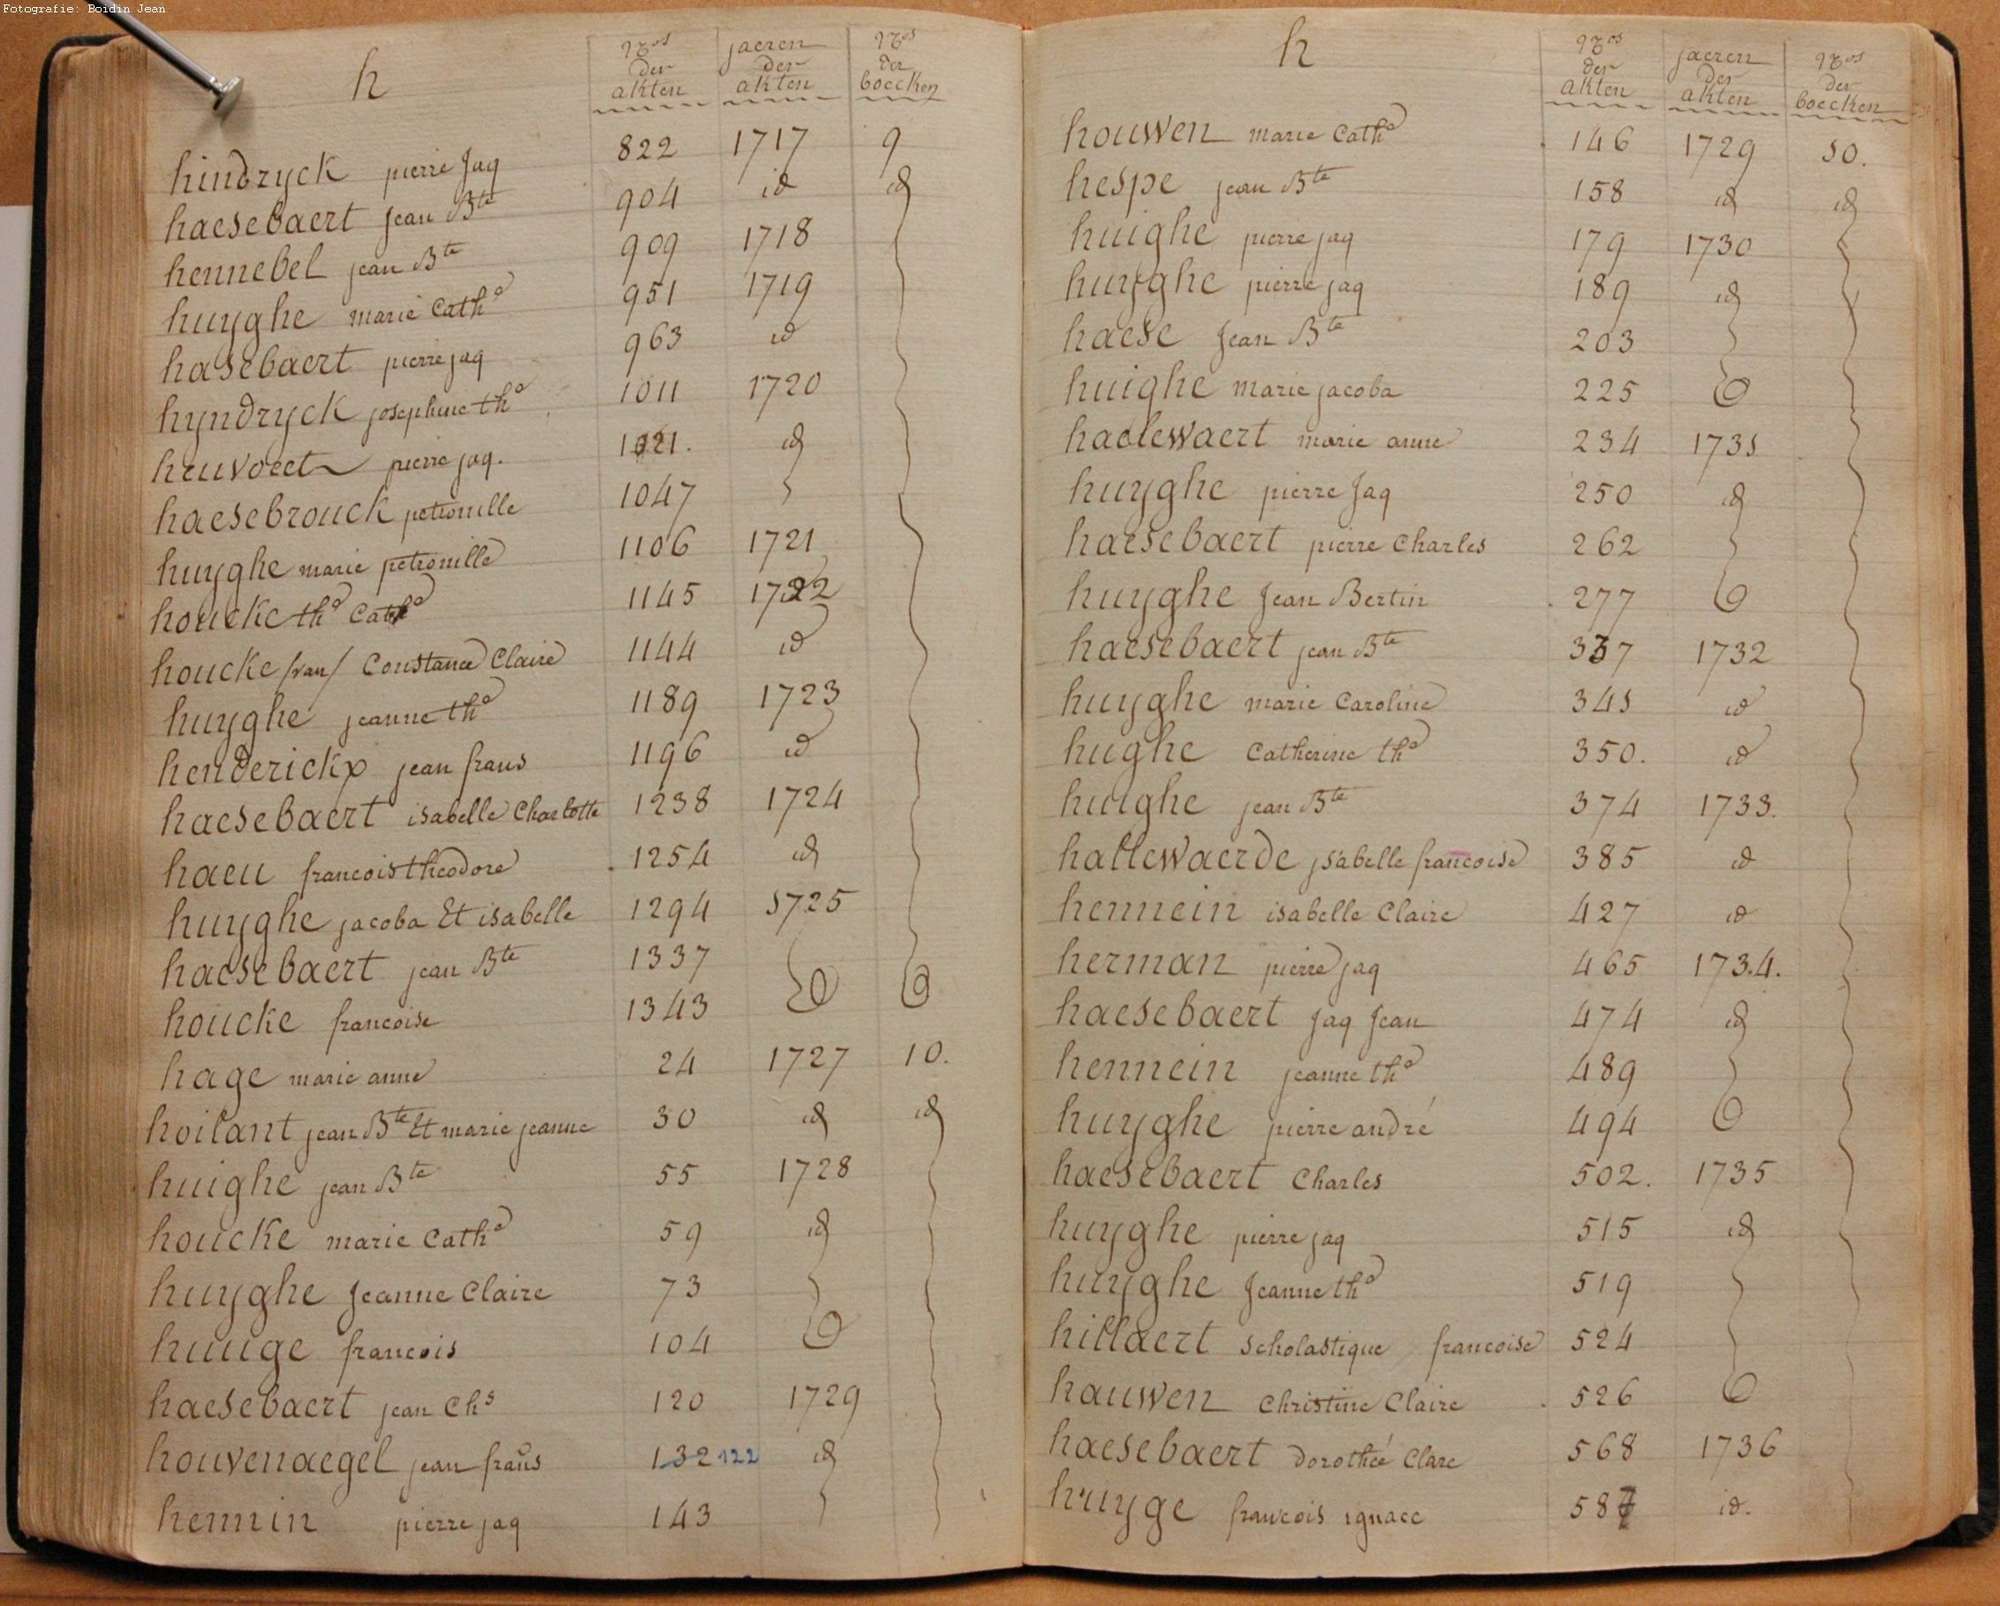 Fotografie: Boidin Jean
h
nros der akten
jaeren der akten
nros der boecken
hindryck pierre Jaq 822 1717 9
haesebaert Jean Bte 904 id id
hennebel jean Bte 909 1718
huyghe marie Cathe 951 1719
hasebaert pierre jaq 963 id
hyndryck josephine the 1011 1720
heuvoet pierre jaq. 1021. id
haesebrouck petronille 1047
huyghe marie petronille 1106 1721
houcke the Cathe 1145 1722
houcke /van/ Constance Claire 1144 id
huyghe jeanne the 1189 1723
henderickx jean frans 1196 id
haesebaert isabelle Charlotte 1238 1724
haeu francois theodore 1254 id
huyghe jacoba Et isabelle 1294 1725
haesebaert jean Bte 1337
houcke francoise 1343
hage marie anne 24 1727 10.
hoilant jean Bte Et marie jeanne 30 id id
huighe jean Bte 55 1728
houcke marie Cathe 59 id
huyghe Jeanne Claire 73
huuge francois 104
haesebaert jean Chs 120 1729
houvenaegel jean frans 132 122 id
hennin pierre jaq 143
h
nros der akten
jaeren der akten
nros der boecken
houwen marie Cathe 146 1729 10.
hespe jean Bte 158 id id
huighe pierre jaq 179 1730
huyghe pierre jaq 189 id
haese Jean Bte 203
huighe marie jacoba 225
haelewaert marie anne 234 1731
huyghe pierre Jaq 250 id
haesebaert pierre Charles 262
huyghe Jean Bertin 277
haesebaert jean Bte 337 1732
huyghe marie Caroline 341 id
hughe Catherine the 350. id
huighe jean Bte 374 1733.
hallewaerde jsabelle francoise 385 id
hennein isabelle Claire 427 id
herman pierre jaq 465 1734.
haesebaert Jaq Jean 474 id
hennein jeanne the 489
huyghe pierre andré 494
haesebaert Charles 502. 1735
huyghe pierre jaq 515 id
huyghe Jeanne the 519
hillaert scholastique francoise 524
hauwen Christine Claire 526
haesebaert Dorothée Clare 568 1736
huyge francois ignace 587 id.